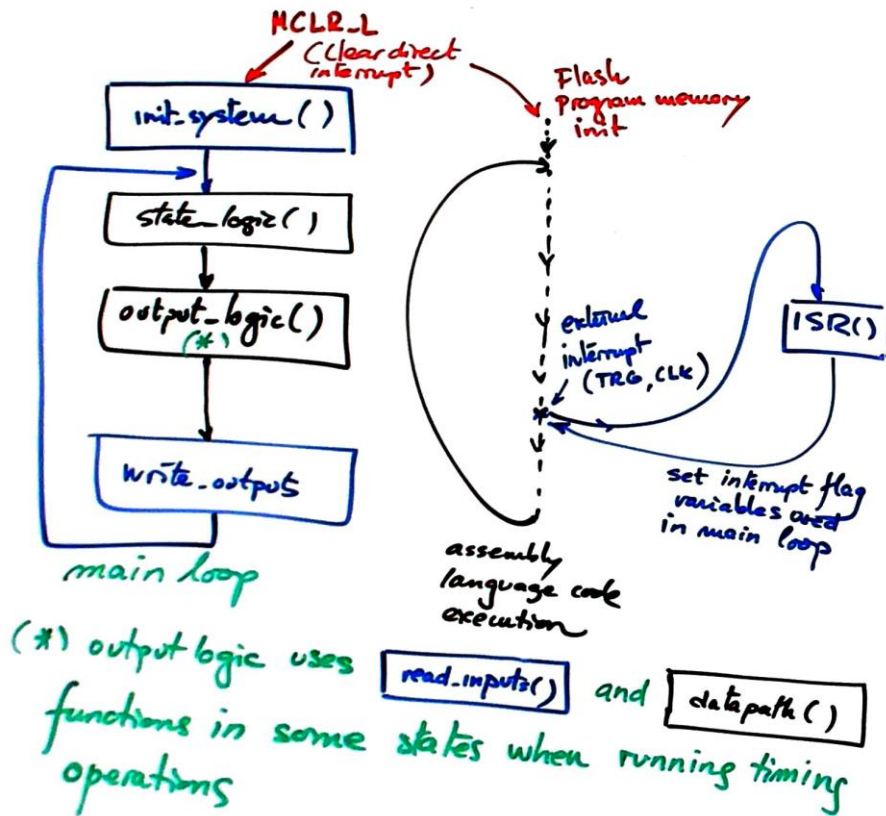 MCLR_L
(Clear direct
interrupt)
init_system()
state_logic()
output_logic()
(*)
write_outputs
main loop
Flash
program memory
init
external
interrupt
(TRG, CLK)
ISR()
set interrupt flag
variables used
in main loop
assembly
language code
execution
(*) output logic uses read_inputs() and datapath()
functions in some states when running timing
operations